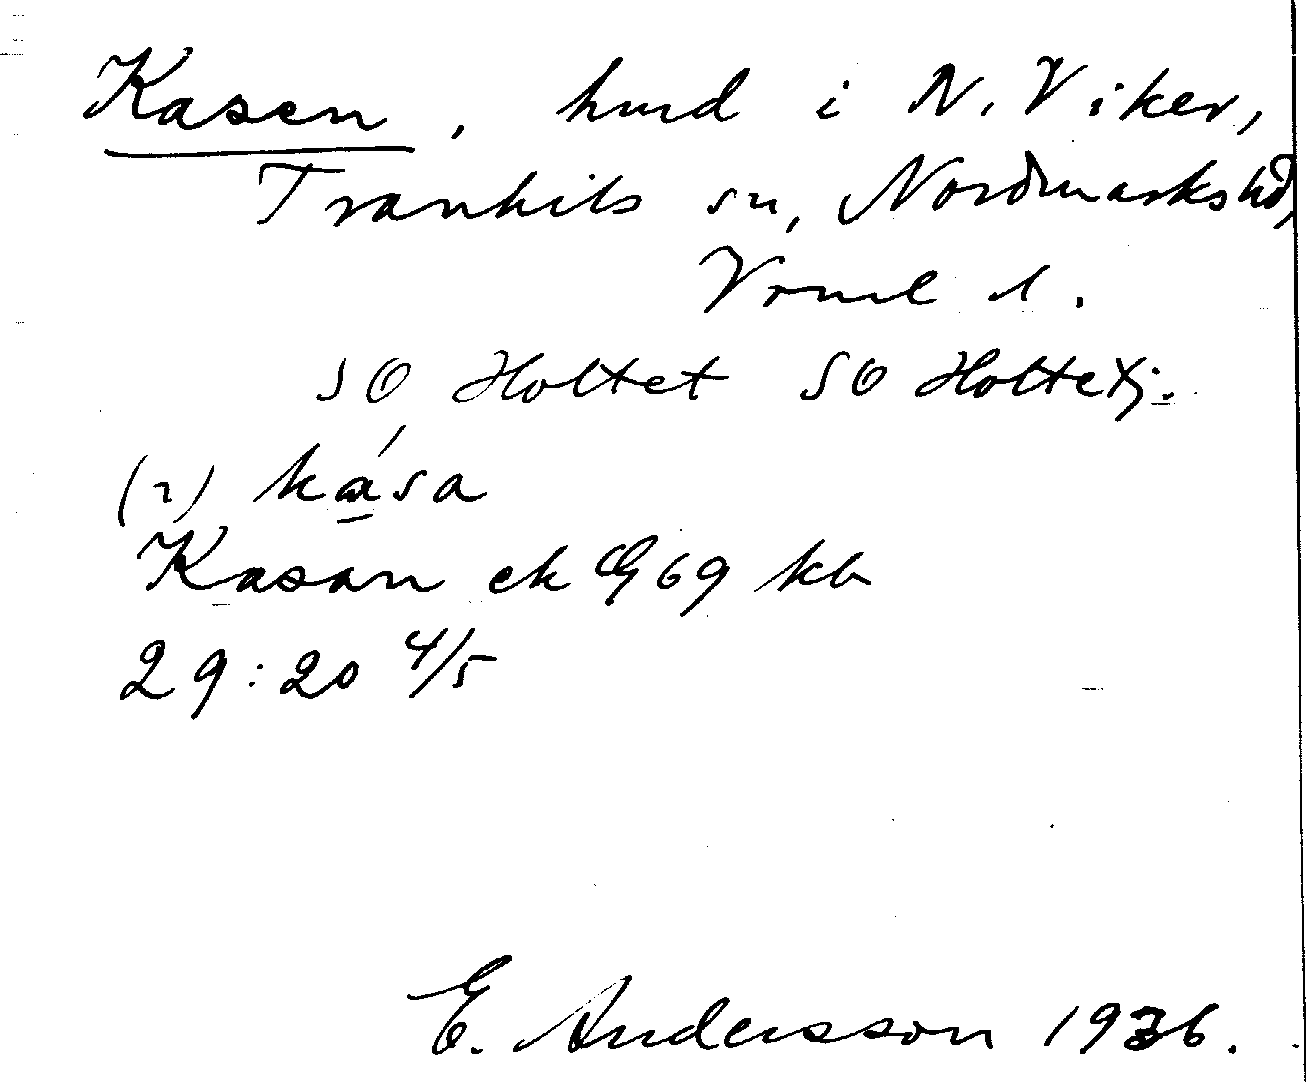 Kasen, hmd i N. Viker,
Trankils sn, Nordmarks hd,
Vrml l.
SO Holtet SO Holtetj.
(2) kása
Kasan ek G 69 kb
29:20 4/5
E. Andersson 1936.